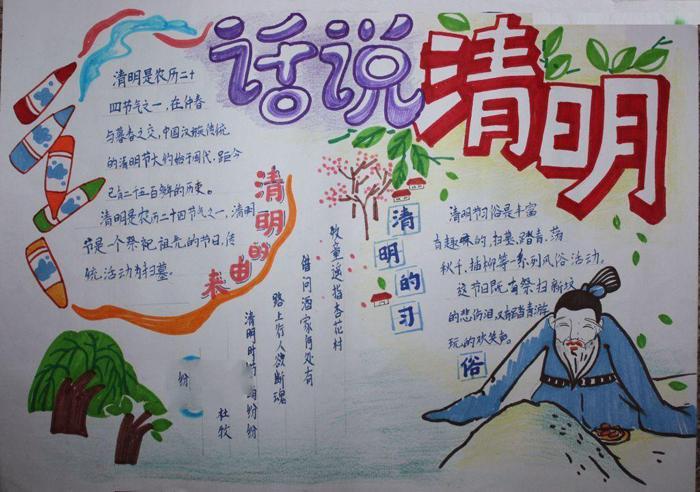 话说清明
清明是农历二十
四节气之一，在仲春
与暮春之交，中国汉族传统
的清明节大约始于周代，距今
已有二千五百多年的历史。
清明是农历二十四节气之一，清明
节是一个祭祀祖先的节日，传
统活动为扫墓。
清明的由来
清明的习俗
清明节习俗是丰富
有趣味的，扫墓、踏青、荡
秋千、插柳等一系列风俗活动。
这节日既有祭扫新坟
的悲伤泪，又有踏青游
玩的欢笑声。
牧童遥指杏花村
借问酒家何处有
路上行人欲断魂
清明时节雨纷纷
杜牧